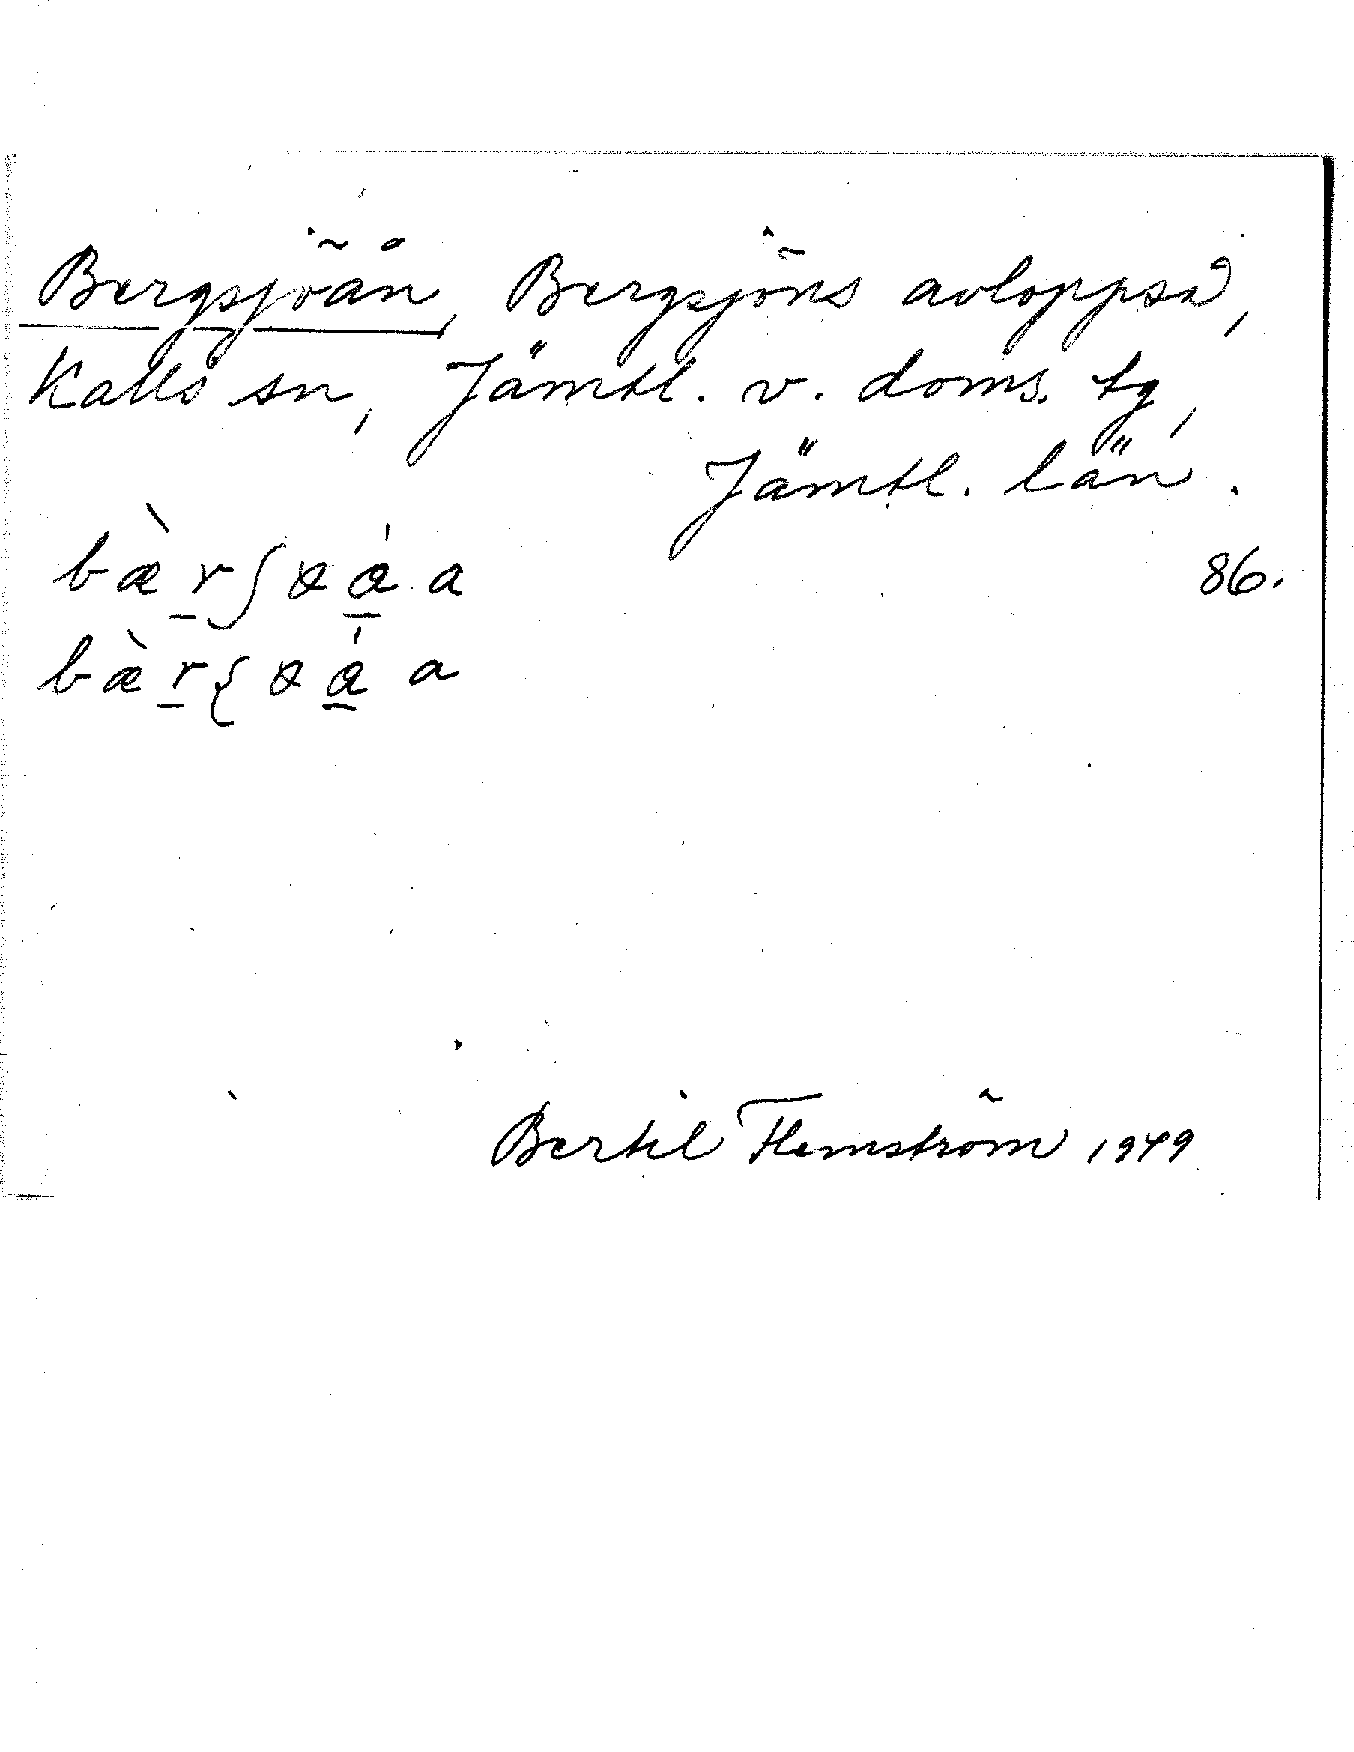 Bergsjöån, Bergsjöns avloppså,
Kalls sn, Jämtl. v. doms. tg,
Jämtl. län.
bær̠ʃøa̠a 86.
bær̠
Bertil Flemström 1949